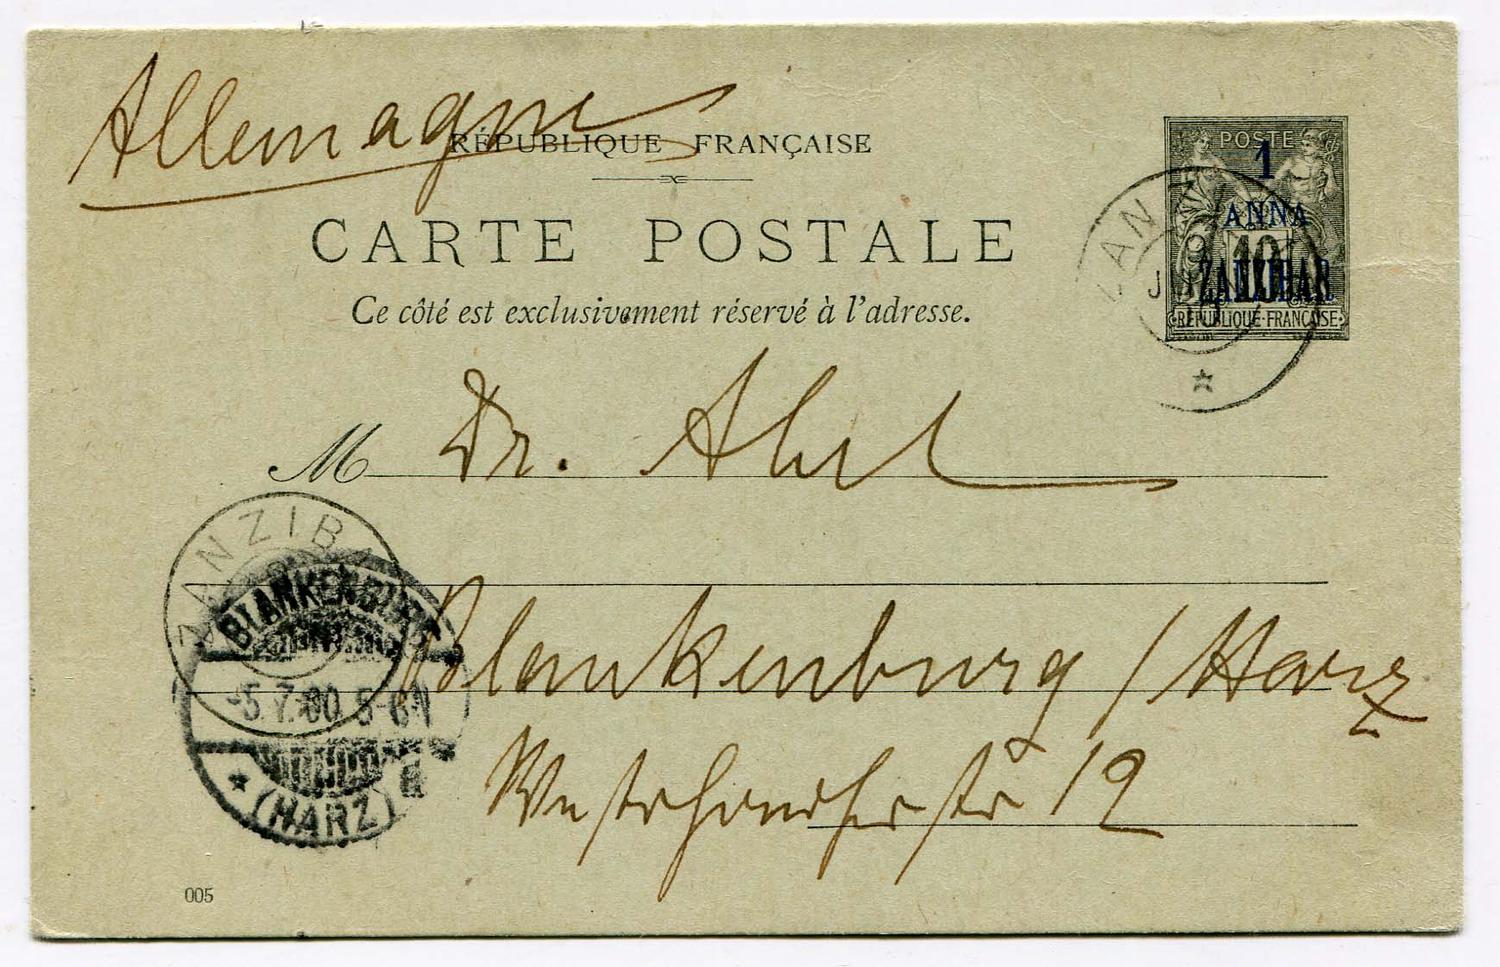 Allemagne
RÉPUBLIQUE FRANÇAISE
CARTE POSTALE
Ce côté est exclusivement réservé à l'adresse.
POSTE
1
ANNA
10
ZANZIBAR
RÉPUBLIQUE FRANÇAISE
ZANZ
9
M Dr. Abel
ZANZIB
BLANKENBURG
-5.7.00.5-6N
(HARZ)
Blankenburg / Harz
12
005